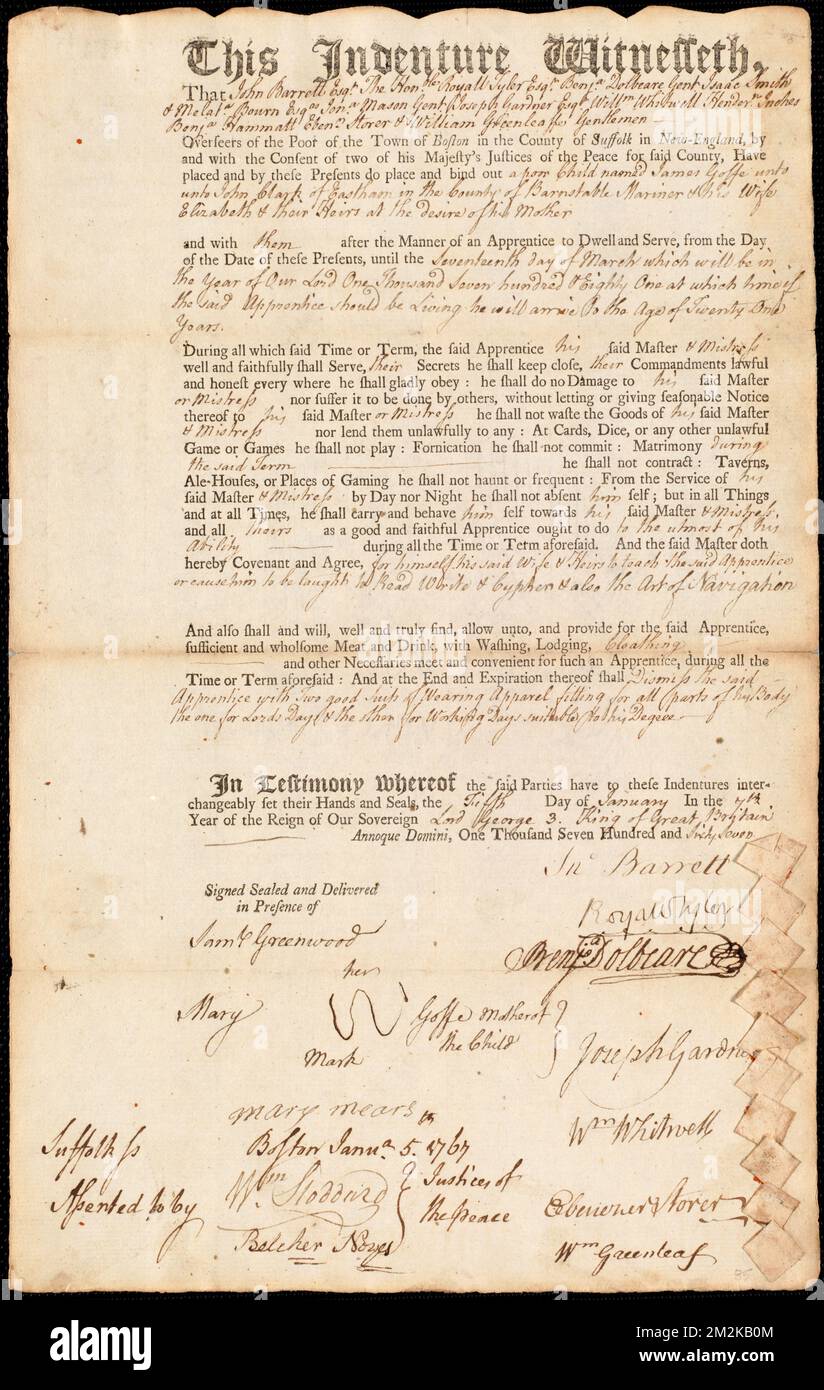 This Indenture Witnesseth,
That John Barrett Esqr. The Honble. Royall Tyler Esqr. Benja. Dolbeare Gent Isaac Smith
& Melata. Bourn Esqrs Jona. Mason Gent Joseph Gardner Esqr. Willm Whitwell Hendern. Inches
Benja Hammatt Ebenr. Storer & William Greenleaffe Gentlemen
Overseers of the Poor of the Town of Boston in the County of Suffolk in New-England, by
and with the Consent of two of his Majesty's Justices of the Peace for said County, Have
placed and by these Presents do place and bind out a poor Child named James Goffe unto
unto John Clark of Eastham in the County of Barnstable Mariner & his Wife
Elizabeth & their Heirs at the desire of his Mother
and with them after the Manner of an Apprentice to Dwell and Serve, from the Day
of the Date of these Presents, until the Seventeenth day of March which will be in
the Year of Our Lord One Thousand Seven hundred & Eighty One at which time if
the said Apprentice should be Living he will arrive to the Age of Twenty One
Years.
During all which said Time or Term, the said Apprentice his said Master & Mistress
well and faithfully shall Serve, their Secrets he shall keep close, their Commandments lawful
and honest every where he shall gladly obey : he shall do no Damage to his said Master
or Mistress nor suffer it to be done by others, without letting or giving seasonable Notice
thereof to his said Master or Mistress he shall not waste the Goods of his said Master
& Mistress nor lend them unlawfully to any : At Cards, Dice, or any other unlawful
Game or Games he shall not play : Fornication he shall not commit : Matrimony during
the said Term he shall not contract : Taverns,
Ale-Houses, or Places of Gaming he shall not haunt or frequent : From the Service of his
said Master & Mistress by Day nor Night he shall not absent him self ; but in all Things
and at all Times, he shall carry and behave him self towards his said Master & Mistress,
and all theirs as a good and faithful Apprentice ought to do to the utmost of his
Ability during all the Time or Term aforesaid. And the said Master doth
hereby Covenant and Agree, for himself his said Wife & Heirs to teach the said Apprentice
or cause him to be taught to Read Write & Cypher & also the Art of Navigation
And also shall and will, well and truly find, allow unto, and provide for the said Apprentice,
sufficient and wholsome Meat and Drink, with Washing, Lodging, Cloathing
and other Necessaries meet and convenient for such an Apprentice, during all the
Time or Term aforesaid : And at the End and Expiration thereof shall Dismiss the said
Apprentice with Two good Suits of Wearing Apparel fitting for all parts of his Body
the one for Lords Days & the other for Working Days suitable to his Degree
In Testimony whereof the said Parties have to these Indentures inter-
changeably set their Hands and Seals, the Fifth Day of January In the 7th.
Year of the Reign of Our Sovereign Lord George 3. King of Great Britain
Annoque Domini, One Thousand Seven Hundred and Sixty Seven
Jno Barrett
Signed Sealed and Delivered
in Presence of
Royall Tyler
Saml. Greenwood
Benja Dolbeare
her
Mary Goffe Mother of
the Child
Mark
Joseph Gardner
mary mears
Wm Whitwell
Suffolk ss Boston Janua. 5th. 1767
Assented to by Wm Stoddard Justices of
the Peace
Ebenezer Storer
Belcher Noyes
Wm Greenleaf
alamy
Image ID: 2M2KB0M
www.alamy.com